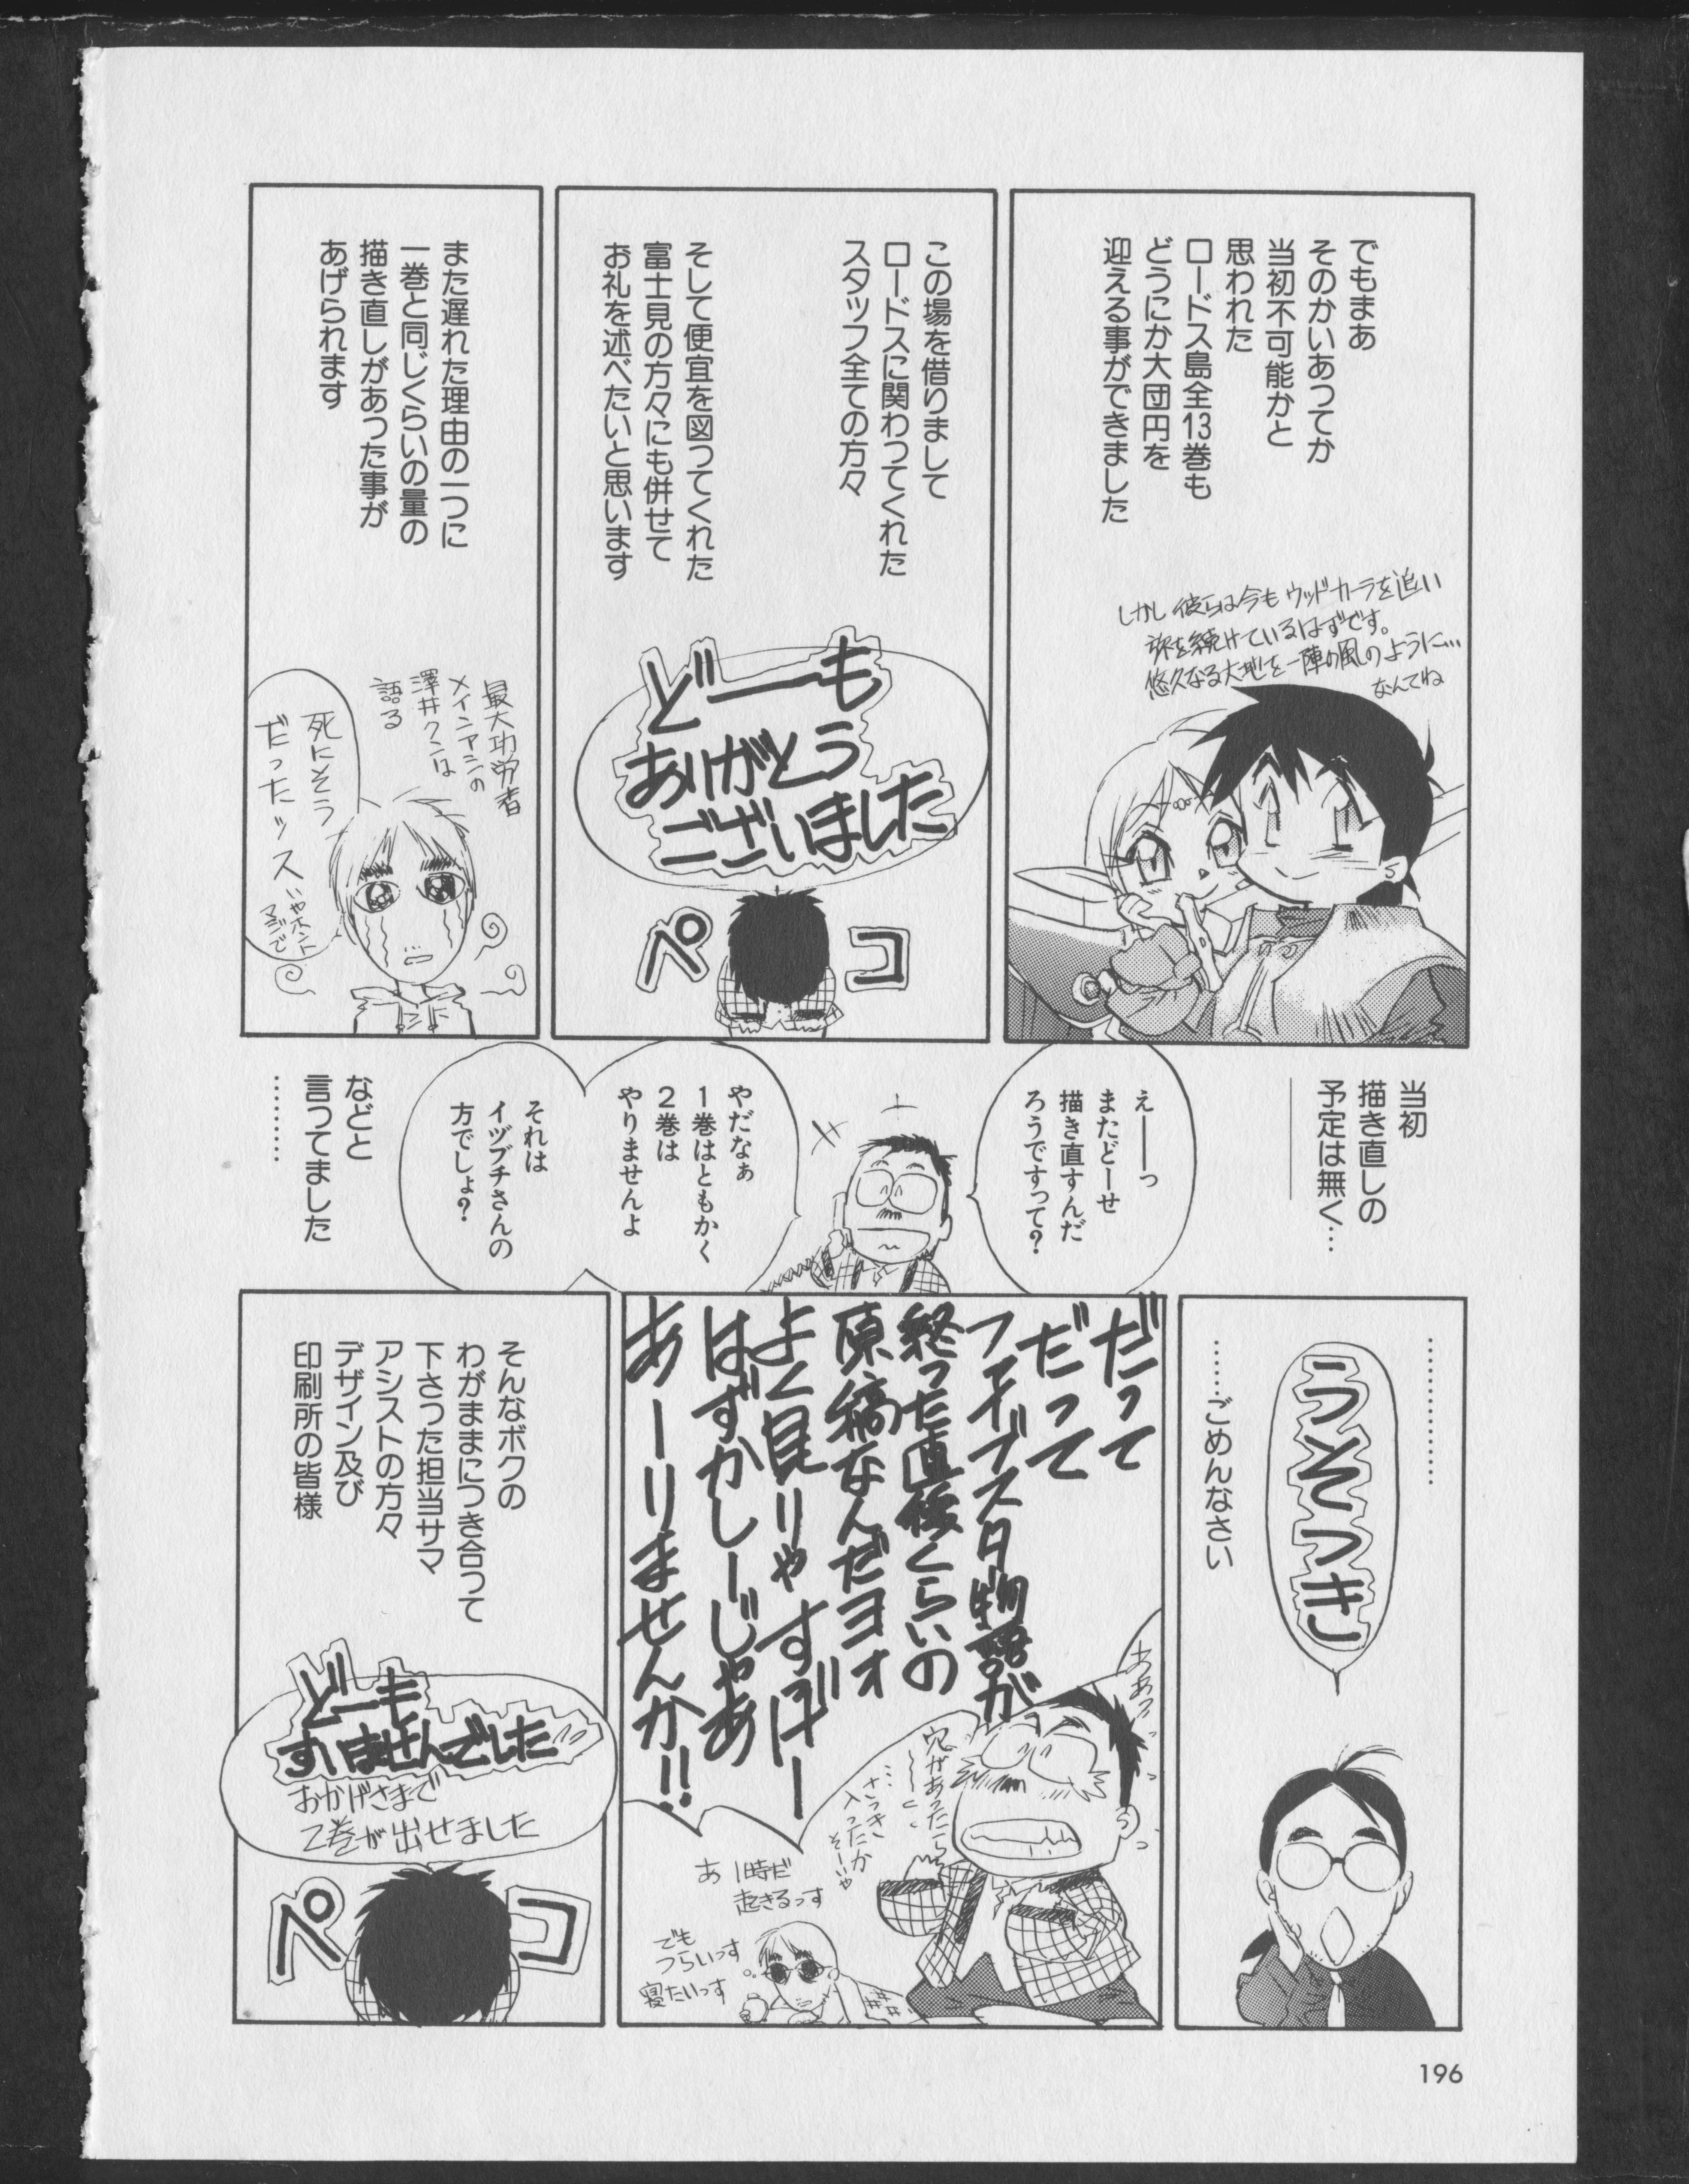 でもまあ
そのかいあってか
当初不可能かと
思われた
ロードス島全13巻も
どうにか大団円を
迎える事ができました
しかし彼らは今もウッドカーラを追い
旅を続けているはずです。
悠久なる大地を一陣の風のように…
なんてね
この場を借りまして
ロードスに関わってくれた
スタッフ全ての方々
そして便宜を図ってくれた
富士見の方々にも併せて
お礼を述べたいと思います
どーも
ありがとう
ございました
ペコ
また遅れた理由の一つに
一巻と同じくらいの量の
描き直しがあった事が
あげられます
最大功労者
メインアシの
澤井クンは
語る
死にそう
だったッス
いやホント
マジで
当初
描き直しの
予定は無く…
えーーっ
またどーせ
描き直すんだ
ろうですって?
やだなぁ
1巻はともかく
2巻は
やりませんよ
それは
イヅブチさんの
方でしょ?
などと
言ってました
………
…………
うそつき
……ごめんなさい
だって
だって
ファイブスタ物語が
終った直後くらいの
原稿なんだヨォ
よく見りゃすげー
はずかしーじゃあ
あーりませんか!!
ああっ
穴があったら
…さっき
入ったか
そーいや
あ 1時だ
起きるっす
でも
つらいっす
寝たいっす
そんなボクの
わがままにつき合って
下さった担当サマ
アシストの方々
デザイン及び
印刷所の皆様
どーも
すいませんでした
おかげさまで
2巻が出せました
ペコ
196